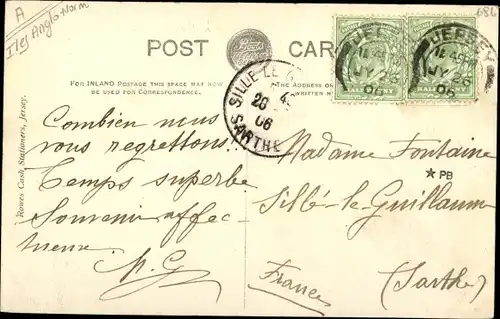 A
Iles Anglo Norm
684
POST CARD
FOR INLAND POSTAGE THIS SPACE MAY NOW
BE USED FOR CORRESPONDENCE.
WRITTEN
JERSEY
JY 26
06
JERSEY
JY 26
06
SILLE-LE-G
26
06
SARTHE
HALFPENNY
HALFPENNY
Rowes Cash Stationers, Jersey.
Combien nous
vous regrettons!
Temps superbe
Souvenir affec
tueux
M. G.
Madame Fontaine
★ PB
Sillé-le-Guillaume
France
(Sarthe)